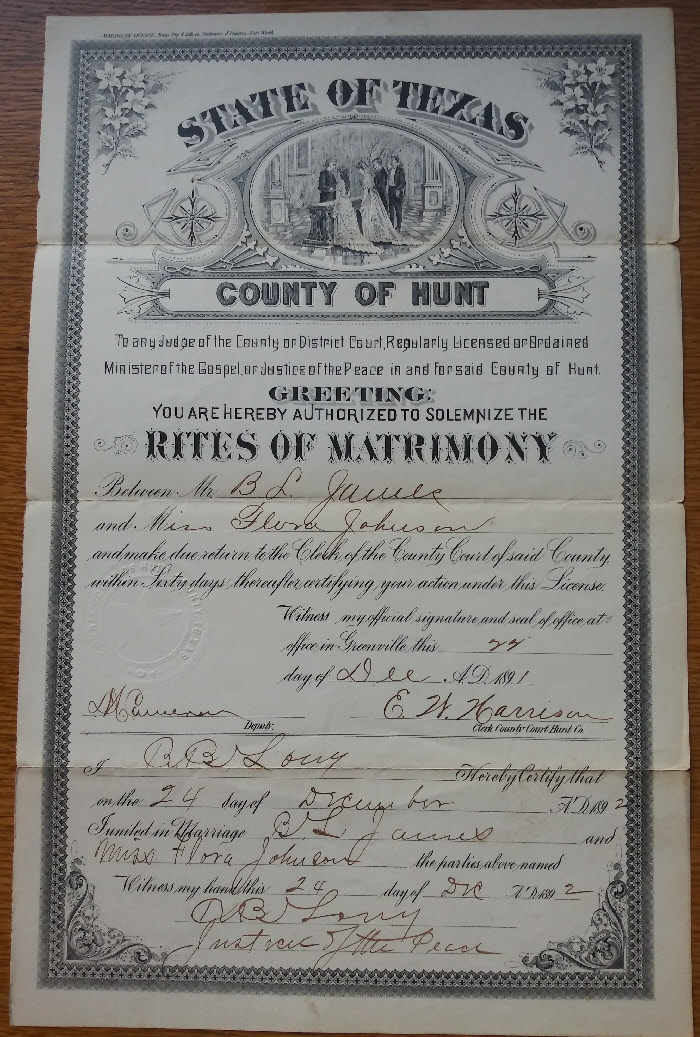 MARRIAGE LICENSE.
STATE OF TEXAS
COUNTY OF HUNT
To any Judge of the County or District Court, Regularly Licensed or Ordained
Minister of the Gospel, or Justice of the Peace in and for said County of Hunt.
GREETING:
YOU ARE HEREBY AUTHORIZED TO SOLEMNIZE THE
RITES OF MATRIMONY
Between Mr B L James
and Miss Flora Johnson
and make due return to the Clerk of the County Court of said County
within Sixty days thereafter, certifying your action under this License.
Witness my official signature and seal of office at
office in Greenville this 22
day of Dec A.D. 1891
Cameron E. W. Harrison
Deputy. Clerk County Court Hunt Co.
I B Long Hereby Certify that
on the 24 day of December A.D. 1892
I united in Marriage B L James and
Miss Flora Johnson the parties above named
Witness my hand this 24 day of Dec A.D. 1892
B Long
Justice of the Peace